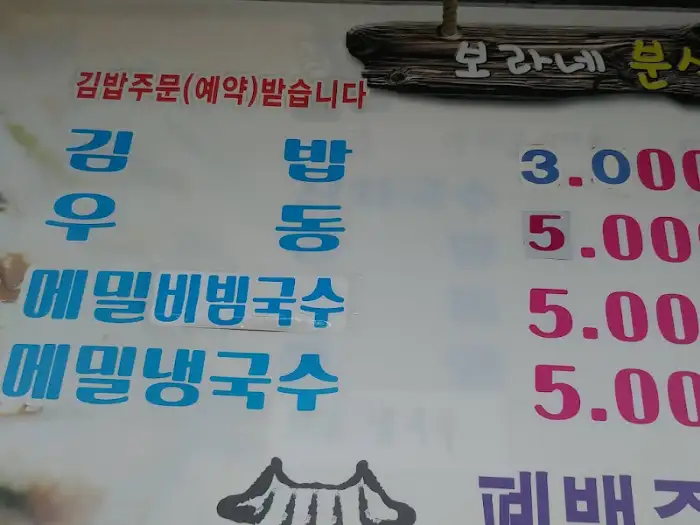 보라네 분식
김밥주문(예약)받습니다
김 밥 3.000
우 동 5.000
메밀비빔국수 5.000
메밀냉국수 5.00
폐백